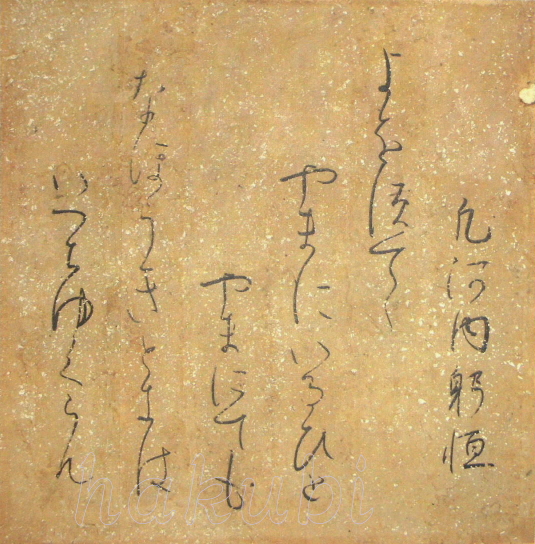 凡河内躬恒
よをすてゝ
やまにいるひと
やまにても
なほうきときは
いつちゆくらん
hakubi